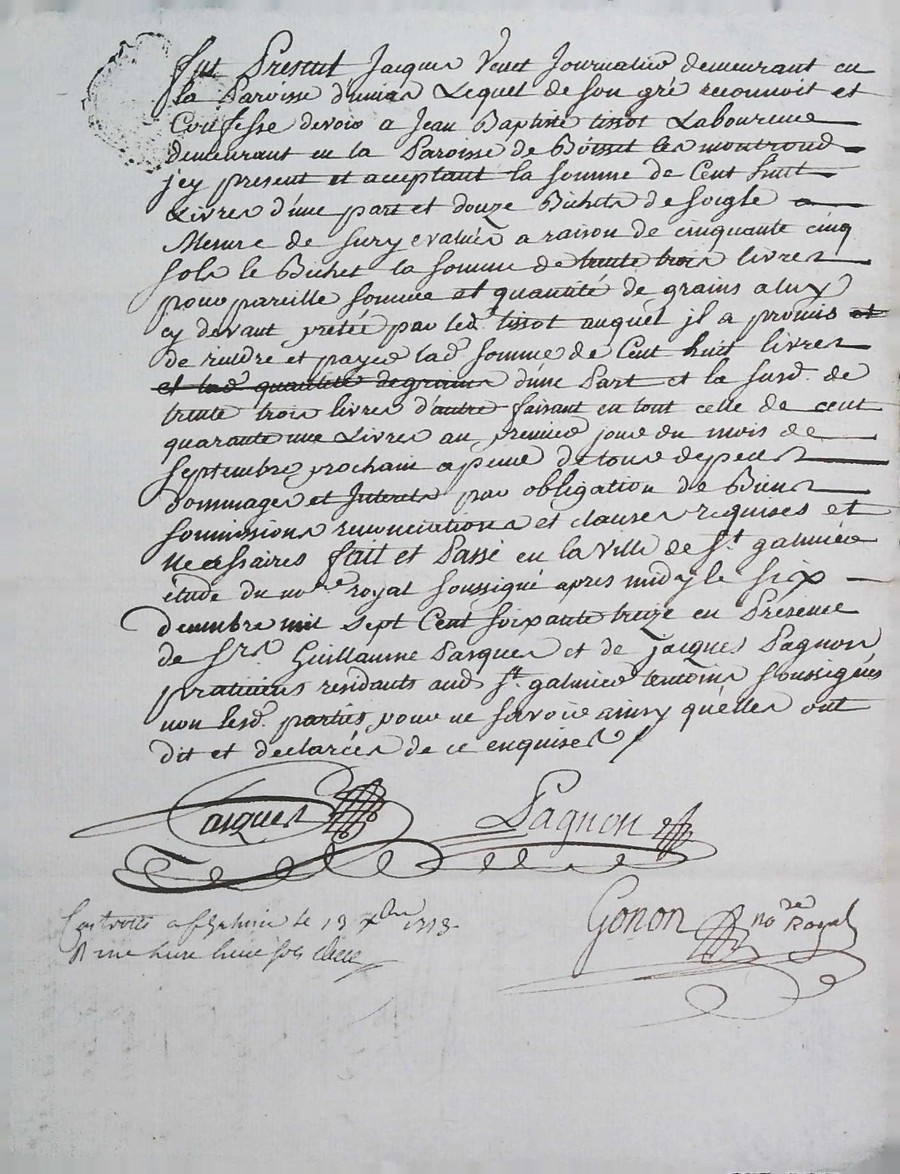 fut Present Jacques Venet Journalier demeurant en
la Paroisse d'unias Lequel de son gré reconnoit et
Confesse devoir a Jean Baptiste tissot Laboureur
demeurant en la Paroisse de Boisset les montrond
jcy present et aceptant la somme de Cent huit
Livres d'une part et douze Bichets de soigle
Mesure de Sury evalués a raison de cinquante cinq
sols le Bichet la somme de trente trois livres
pour pareille somme et quantité de grains a luy
cy devant pretée par led. tissot auquel jl a promis et
de rendre et payer lad. somme de Cent huit livres
et lad. quantité de grains d'une Part et la susd. de
trente trois livres d'autre faisant en tout celle de cent
quarante une Livres au premier jour du mois de
septembre prochain a peine de tous depens
dommages et Interets par obligation de Biens
soumissions renonciations et clauses requises et
necessaires fait et Passé en la ville de St. galmier
étude du nore. royal soussigné apres midy le six
decembre mil sept Cent soixante treize en Presence
de Srs. Guillaume Pasques et de jacques Pagnon
praticiens residants aud. St. galmier temoins soussignés
non lesd. parties pour ne savoir ainsy qu'elles ont
dit et declarées de ce enquises
Pasques Pagnon
Gonon no.re Royal
Controllé a St galmier le 13 Xbre 1773
R une livre huit sols